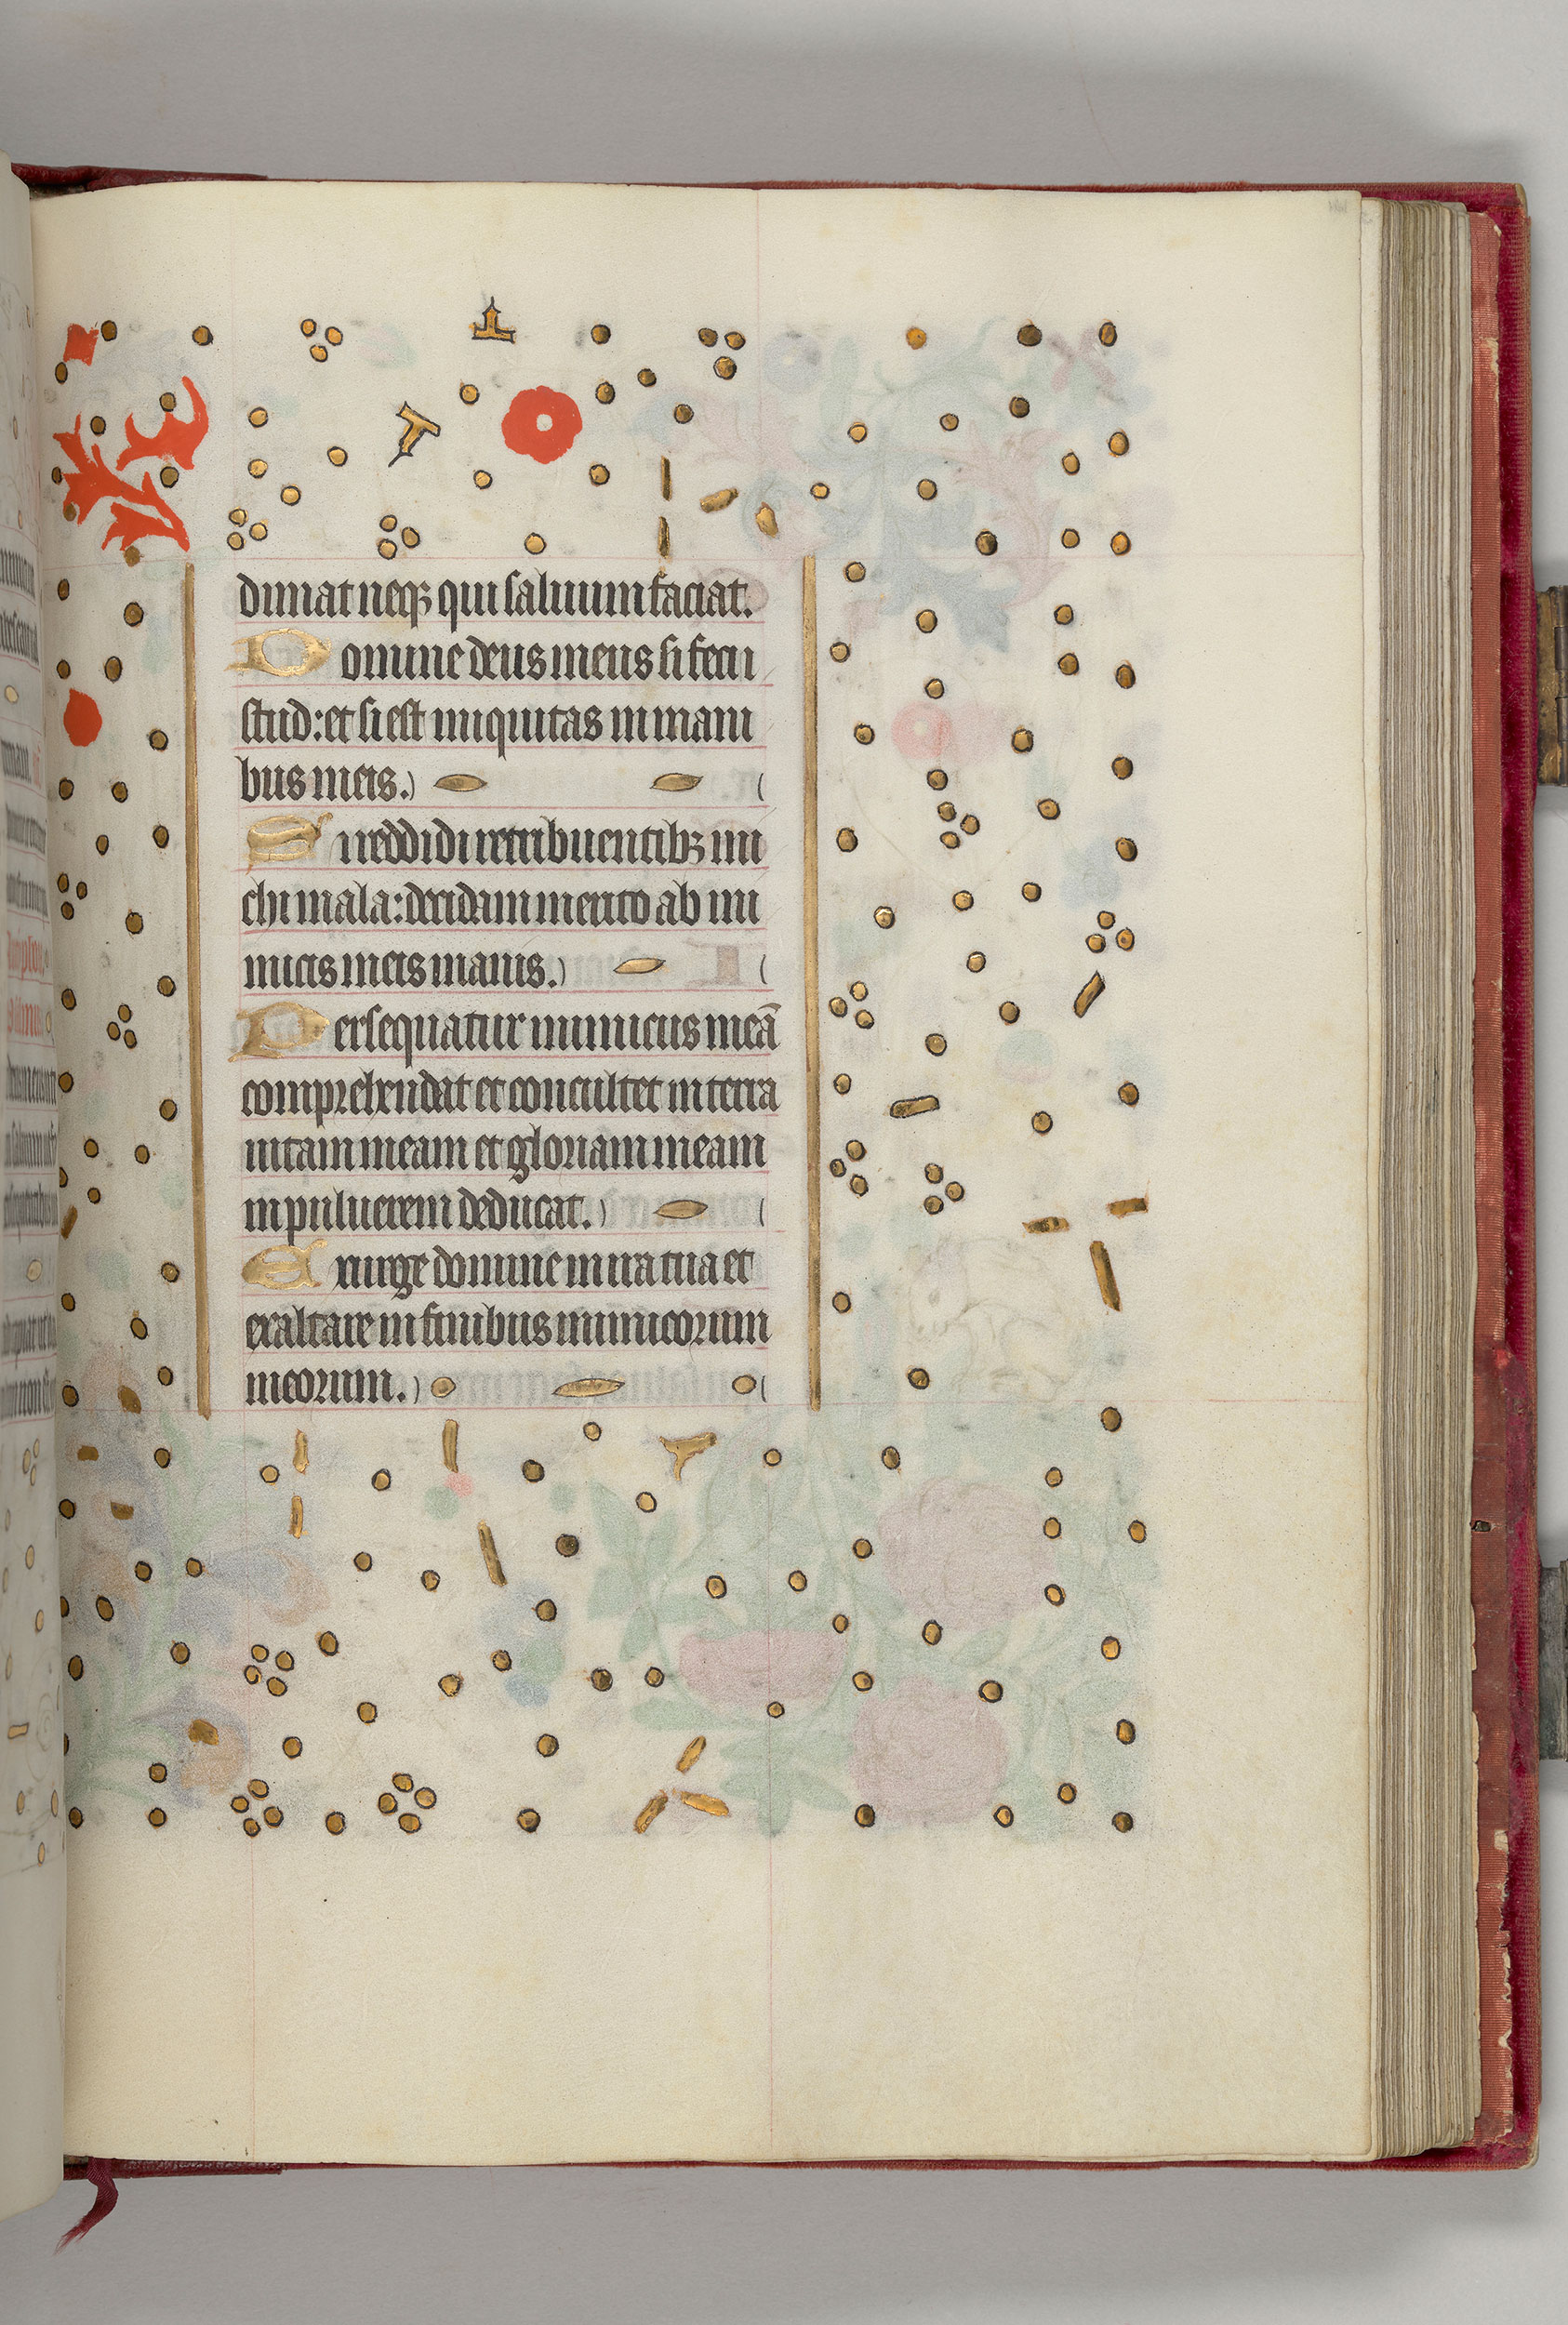 dimat neqꝫ qui saluum faciat.
Domine deus meus si feci
stud: et si est iniquitas in mani
bus meis.)
Si reddidi retribuentibꝫ mi
chi mala: decidam merito ab ini
micis meis inanis.)
Persequatur inimicus meā
comprehendat et conculcet in terra
uitam meam et gloriam meam
in puluerem deducat.)
Exurge domine in ira tua et
exaltare in finibus inimicorum
meorum.)